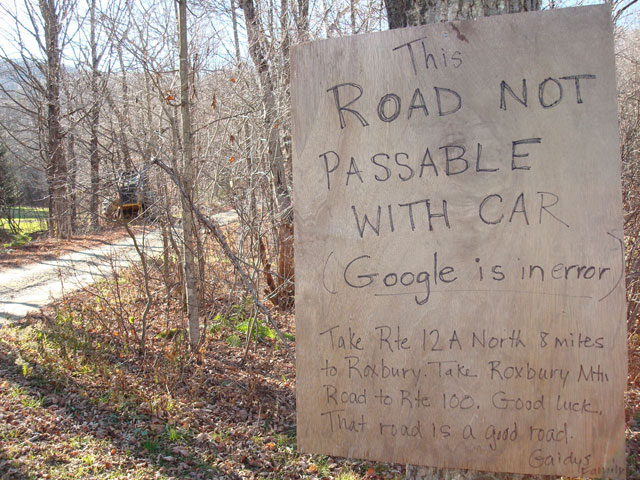 This
ROAD NOT
PASSABLE
WITH CAR
(Google is in error)
Take Rte 12A North 8 miles
to Roxbury. Take Roxbury Mtn
Road to Rte 100. Good luck.
That road is a good road.
Gaidys
Family